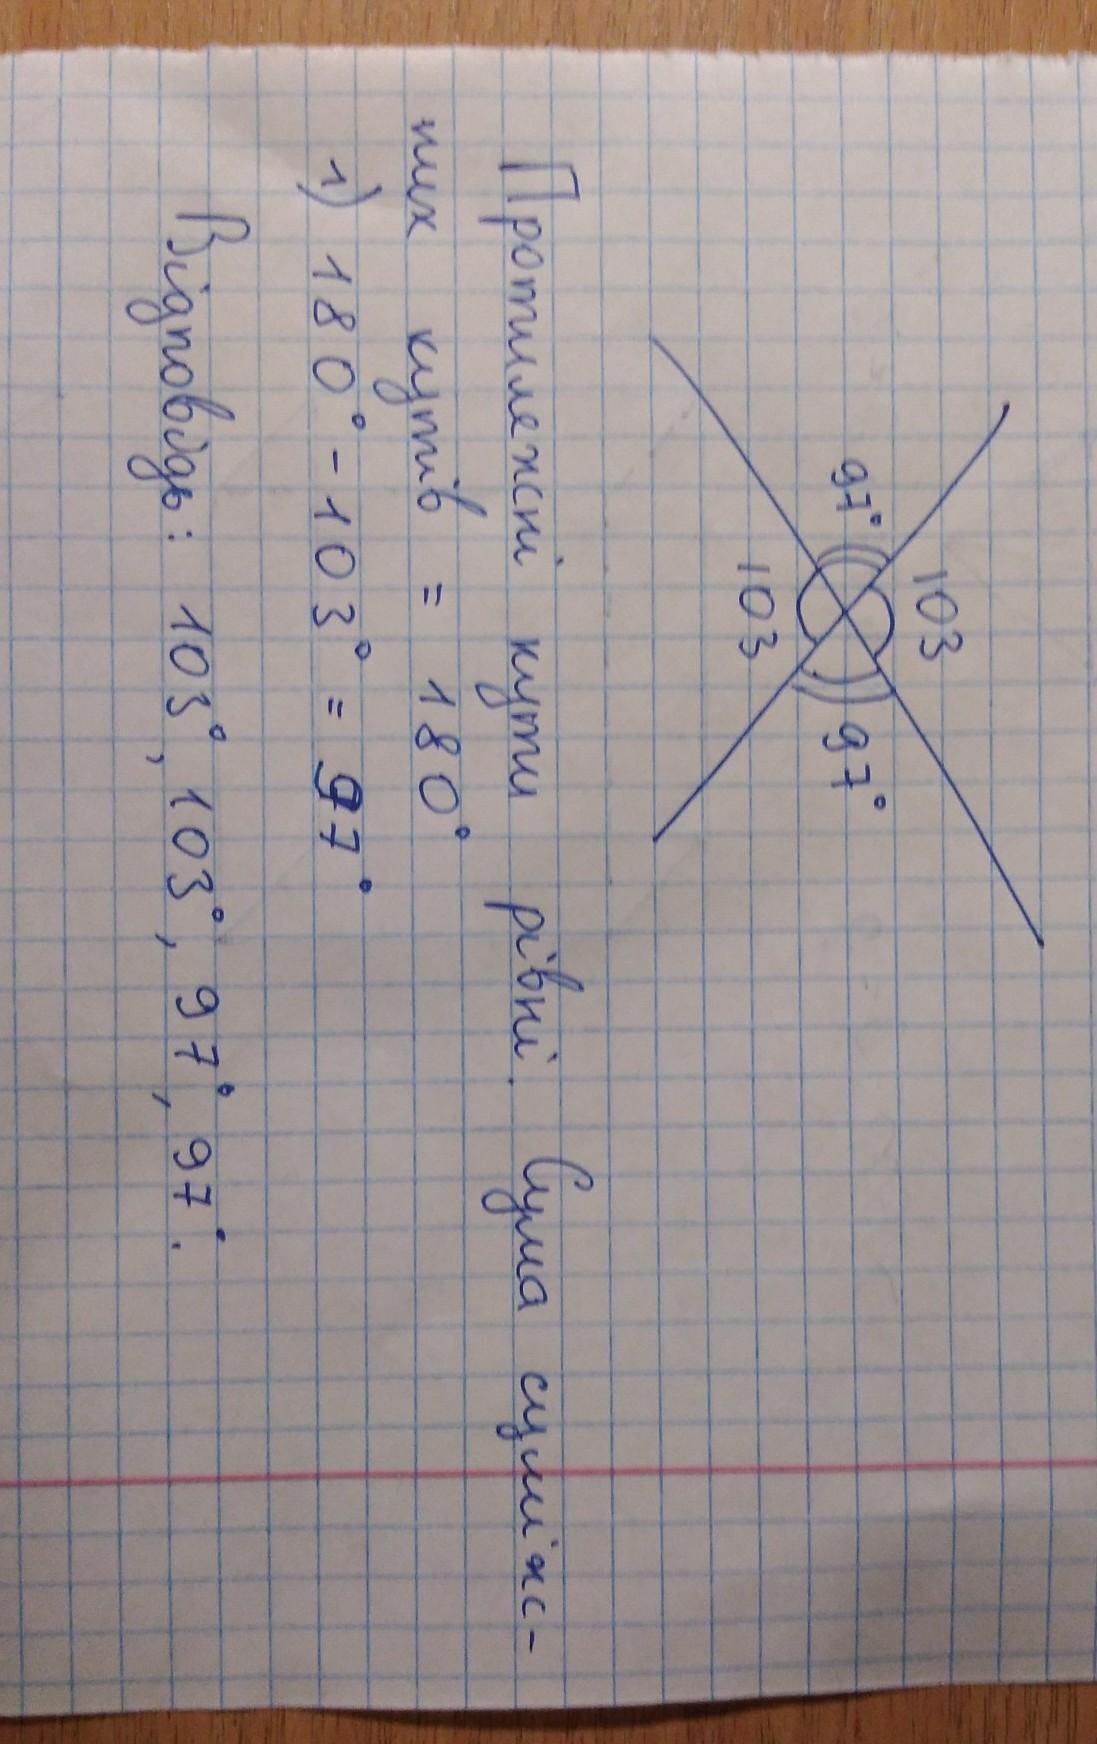 103
97°
97°
103
Протилежні кути рівні. Сума суміж-
них кутів = 180°
1) 180° - 103° = 97°
Відповідь: 103°, 103°, 97°, 97°.